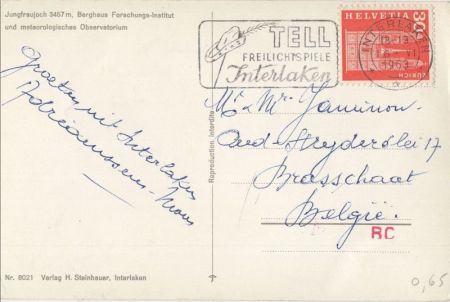 Jungfraujoch 3457 m, Berghaus Forschungs-Institut
und meteorologisches Observatorium
TELL
FREILICHTSPIELE
Interlaken
HELVETIA
30
ZÜRICH
INTERLAKEN
1963
Groeten uit Interlaken
Adriaenssens-
Reproduction interdite
Mr & Mr
Oud-Strijderslei 17
Brasschaat
België.
RC
Nr. 8021 Verlag H. Steinhauer, Interlaken
0,65